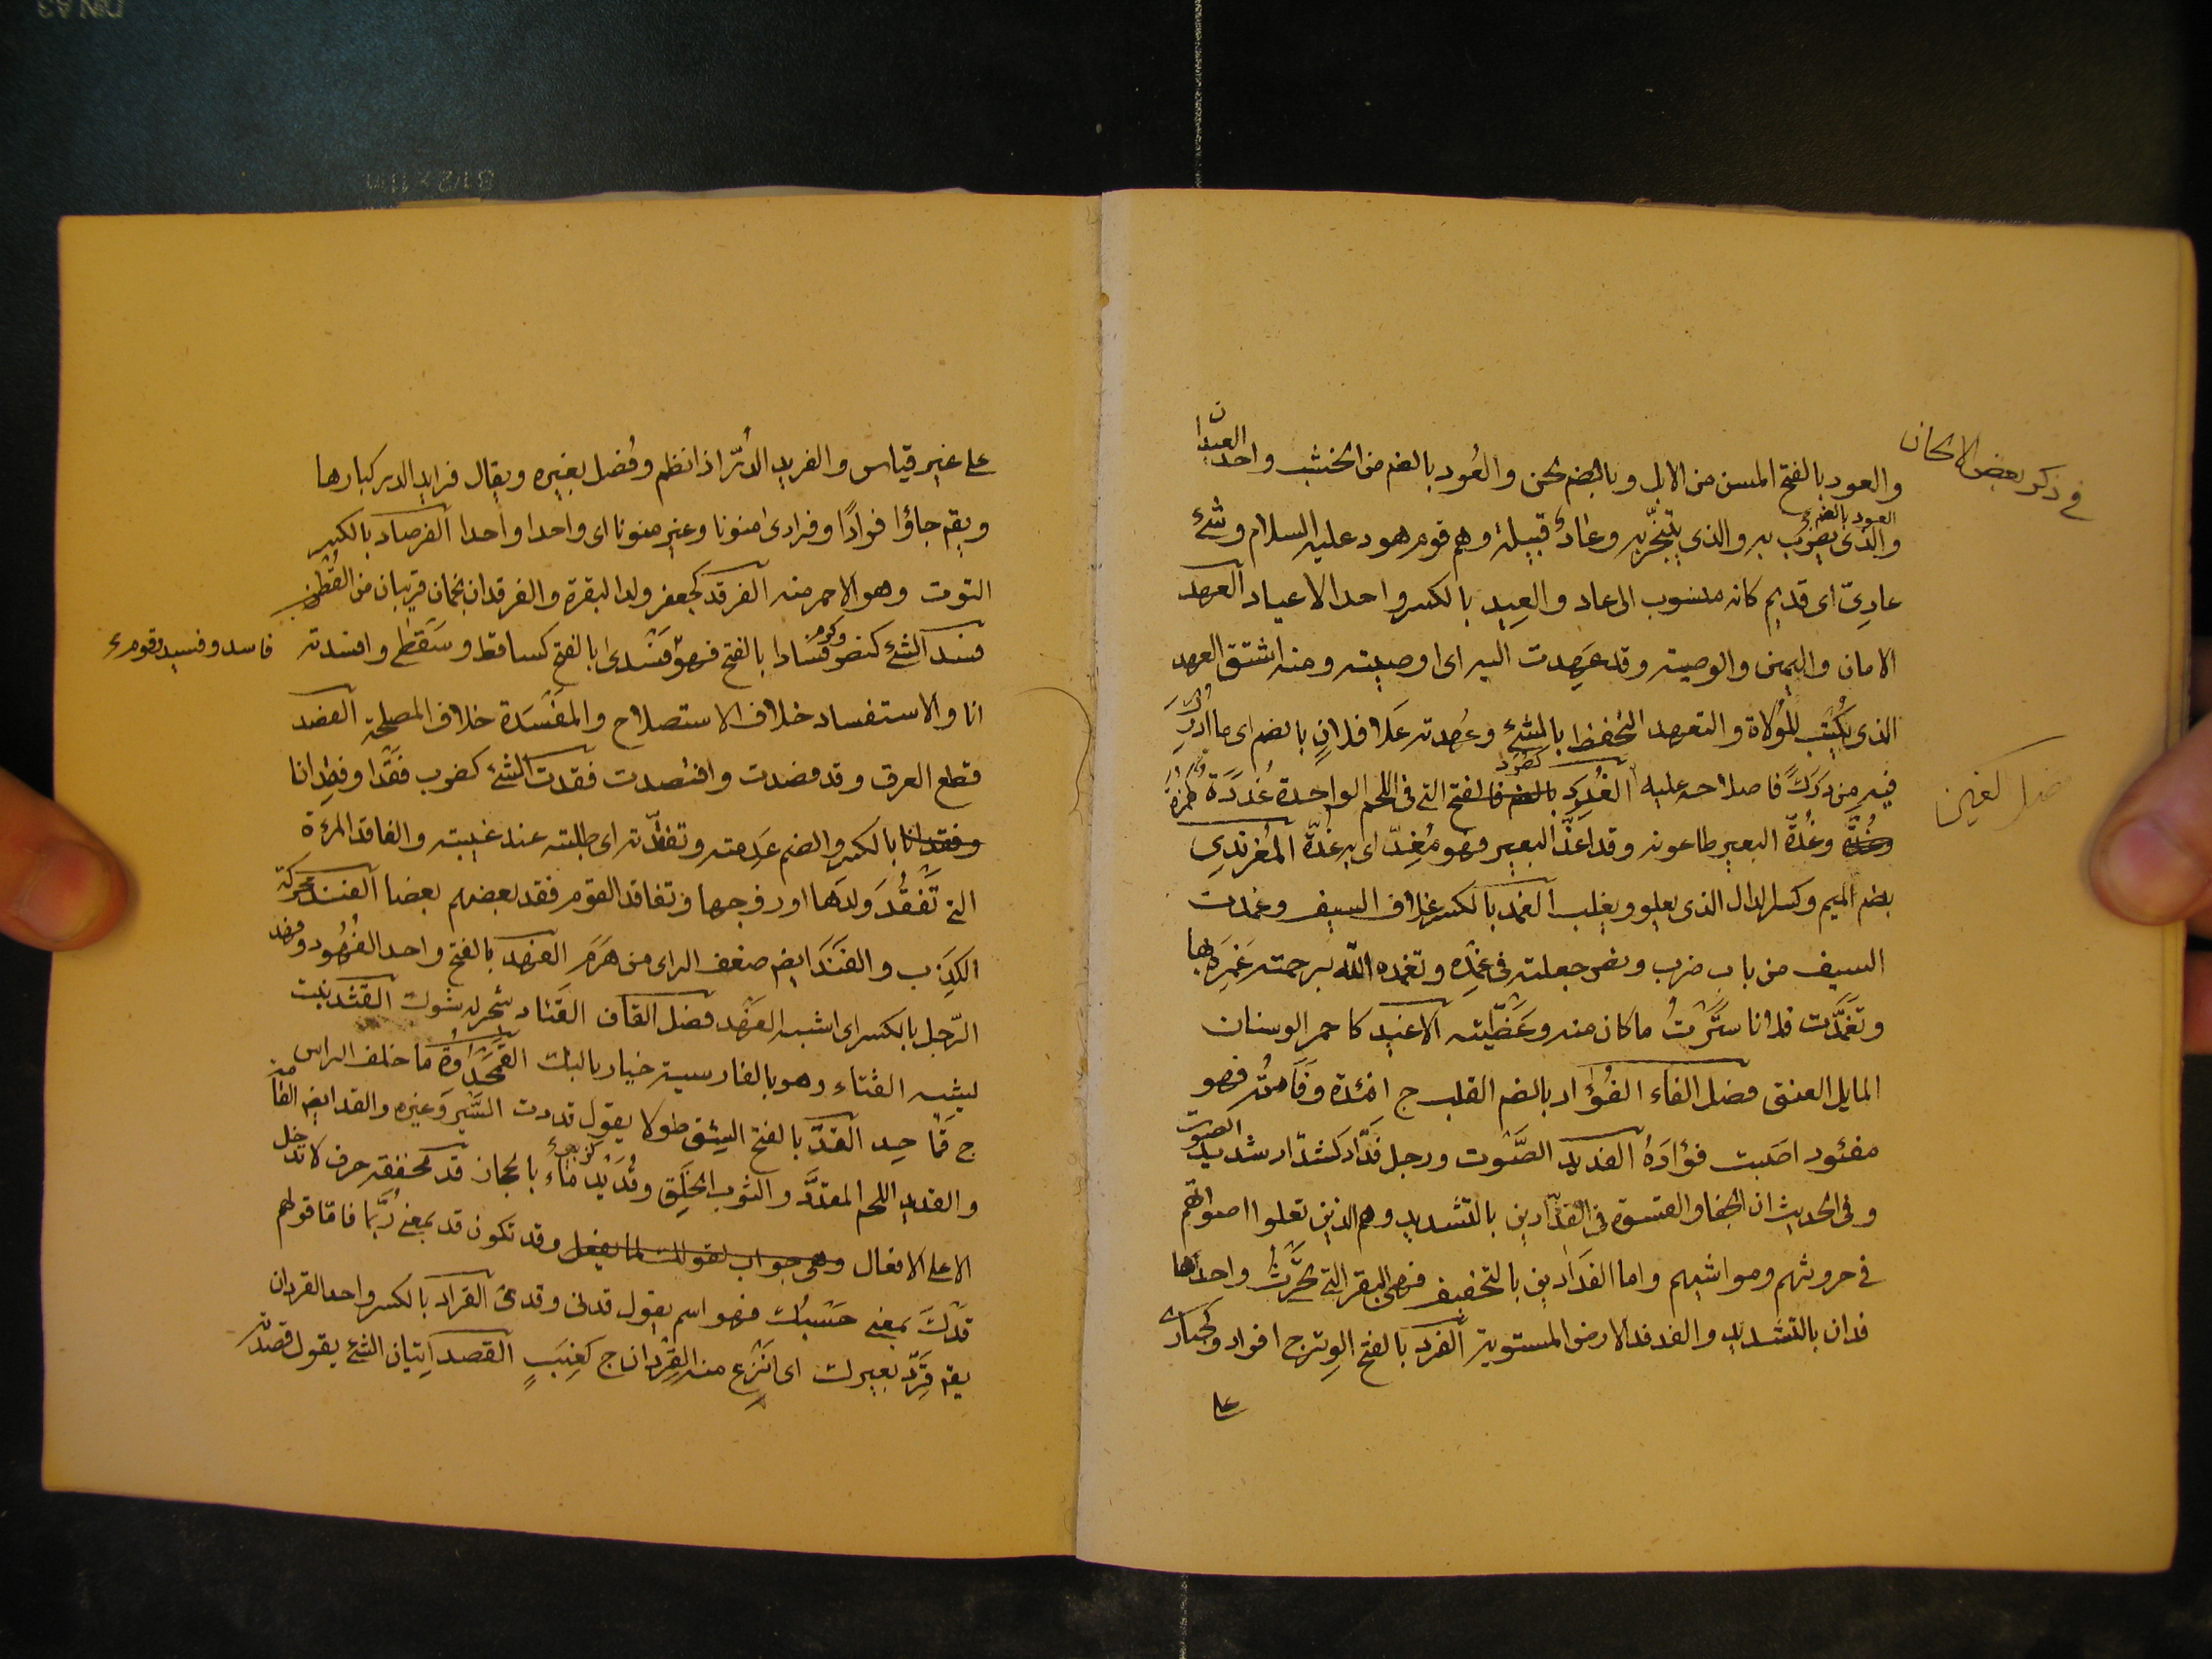 في ذكر بعض الالحان
والعود بالفتح المسن من الابل وبالضم لحن والعُود بالضم من الخشب واحد العيدان
العود بالضم
والذى يضرب به والذى يتبخّر به وعادٌ قبيلة وهم قوم هود عليه السلام وشئ
عادِىّ اى قديم كانه منسوب الى عاد والعِيد بالكسر واحد الاعياد العهد
الامان واليمين والوصية وقد عَهِدت اليه اى اوصيته ومنه اشتق العهد
الذى يُكتَب للوُلاة والتعهد التحفظ بالشئ وعُهدته عَلا فلانٍ بالضم اى ما ادرك
فيه من دَرَكٍ فاصلاحه عليه الغُدَد كصُرَد بالضم فالفتح التى فى اللحم الواحدة غُدَدَة
فصل الغين
وغُدَّة وغُدَّة البعير طاعونه وقد اغدَّ البعير فهو مُغِدّ اى به غدّة المُغرَندِى
بضم الميم وكسر الدال الذى يعلو ويغلب الغمد بالكسر غلاف السيف وغمدت
السيف من باب ضرب ونصر جعلته فى غِمدِه وتغمده الله برحمته غمره بها
وتغمَّدت فلانا سَتَّرتُ ما كان منه وغَطَّيته الاغيد كاحمر الوسنان
المايل العنق فصل الفاء الفُؤَاد بالضم القلب ج افئدة وفَأَدتُه فهو
مفئود اصَبت فؤادَهُ الفديد الصَّوت ورجل فَدَّاد كشدّاد شديد الصوت
وفى الحديث ان الجفا والقسوة فى الفدَّادين بالتشديد وهم الذين تعلوا اصواتهم
فى حروثهم ومواشيهم واما الفَدَادين بالتخفيف فهى البقر التى تحرُثُ واحدها
فدان بالتشديد والفدفد الارض المستوية الفرد بالفتح الوِتر ج افراد
على
على غير قياس والفريد الدُّرّ اذا نظم وفُصل بغيره ويقال فرايد الدر كبارها
ويقم جاؤا فرادًا وفرادى منونا وغير منونا اى واحدا واحدا الفرصاد بالكسر
التوت وهو الاحمر منه الفرقد كجعفر ولد البقرة والفرقدان نجمان قريبان من القطب
فسد الشئ كنصر وكرم فسادا بالفتح فهو فَسْدى بالفتح كساقط وسَقطى وافسدته فاسد وفسيد وقوم
انا والاستفساد خلاف الاستصلاح والمَفسَدة خلاف المصلحة الفصد
قطع العرق وقد فصدت وافتصدت فقدت الشئ كضرب فَقدا وفقدانا
وفقدانا بالكسر والضم عَدِمته وتفقدّته اى طلبته عند غيبته والفاقد المرءة
التى تَفقُدَ وَلدَها او زوجها وتفاقد القوم فقد بعضهم بعضا الفند محركة
الكَذِب والفنَدَ ايضم ضعف الراى من هَرَم الفهد بالفتح واحد الفُهُود وفهد
الرّجل بالكسر اى اشبه الفَهد فصل القاف القَتاد شجر له شوك القثد نبت
يشبه القثاء وهو بالفارسية خيار بالنك القَمَحدُوَةُ ما خلف الراس
ج قَماحِد القَدّ بالفتح الشِّق طولا يقول قددت السَّير وغيره والقد ايضم القامة
والقديد اللحم المقدَّد والثوب الخَلِق وقُدَيْد كزبير ماءٌ بالحجاز قد مخففة حرف لا تدخل
الا على الافعال وهى جواب لقولك لما يفعل وقد تكون قد بمعنى رُبَّما فاما قولهم
قَدْكَ بمعنى حَسْبُك فهو اسم يقول قدنى وقدى القراد بالكسر واحد القردان
يقم قَرِّد بعيرك اى اَنزِع منه القِردان ج كعِنَبٍ القصد اِتِيان الشئ يقول قصدته